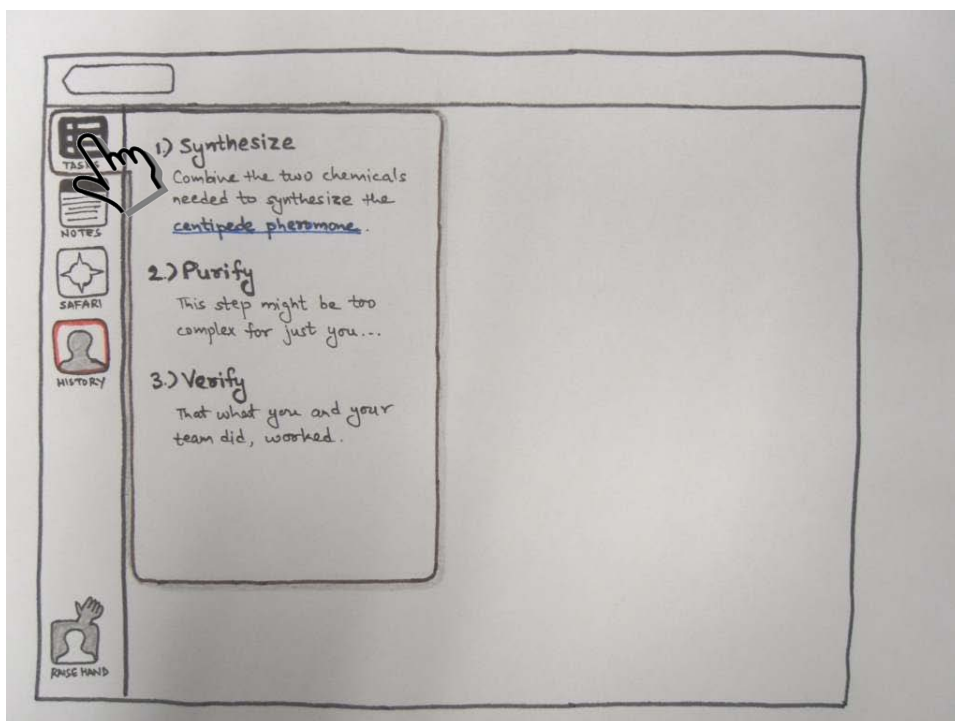 TASKS
NOTES
SAFARI
HISTORY
RAISE HAND
1.) Synthesize
Combine the two chemicals
needed to synthesize the
centipede pheromone.
2.) Purify
This step might be too
complex for just you...
3.) Verify
That what you and your
team did, worked.